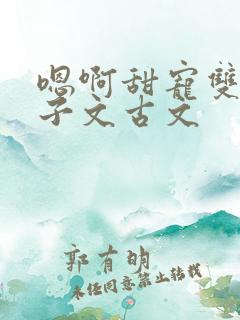 嗯啊甜寵雙
子文古文
郭有明
未经同意禁止转载